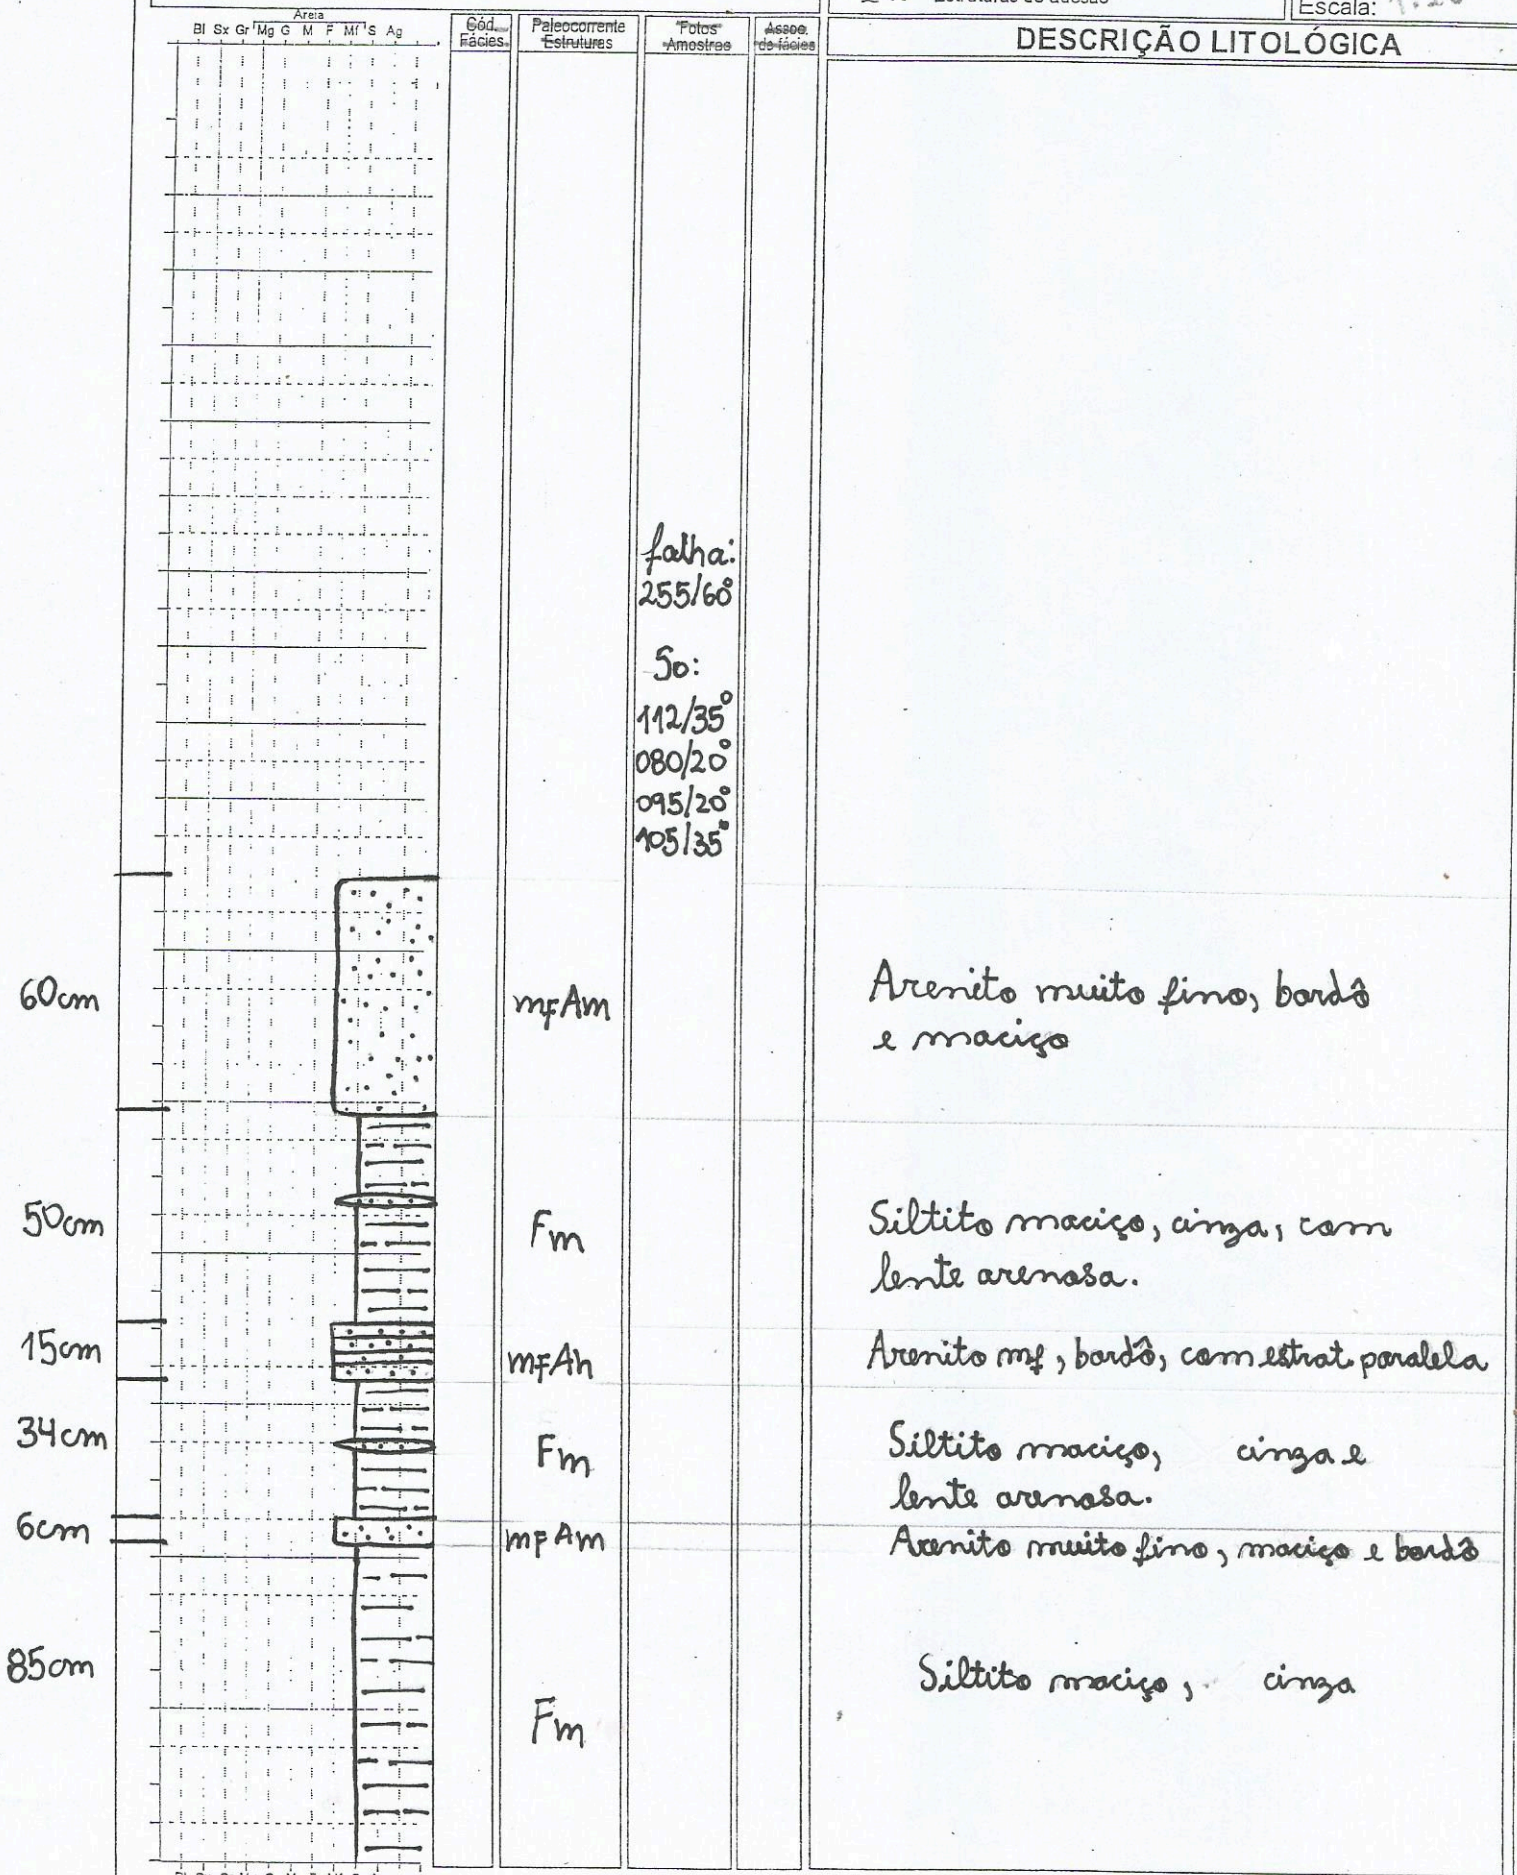 Escala:
Areia
Bl Sx Gr Mg G M F Mf S Ag
Cód.
Fácies.
Paleocorrente
Estruturas
Fotos
Amostras
Assoc.
de fácies
DESCRIÇÃO LITOLÓGICA
falha:
255/60°
So:
112/35°
080/20°
095/20°
105/35°
60cm
mfAm
Arenito muito fino, bordô
e maciço
50cm
Fm
Siltito maciço, cinza, com
lente arenosa.
15cm
mfAh
Arenito mf, bordô, com estrat. paralela
34cm
Fm
Siltito maciço, cinza e
lente arenosa.
6cm
mfAm
Arenito muito fino, maciço e bordô
85cm
Fm
Siltito maciço, cinza